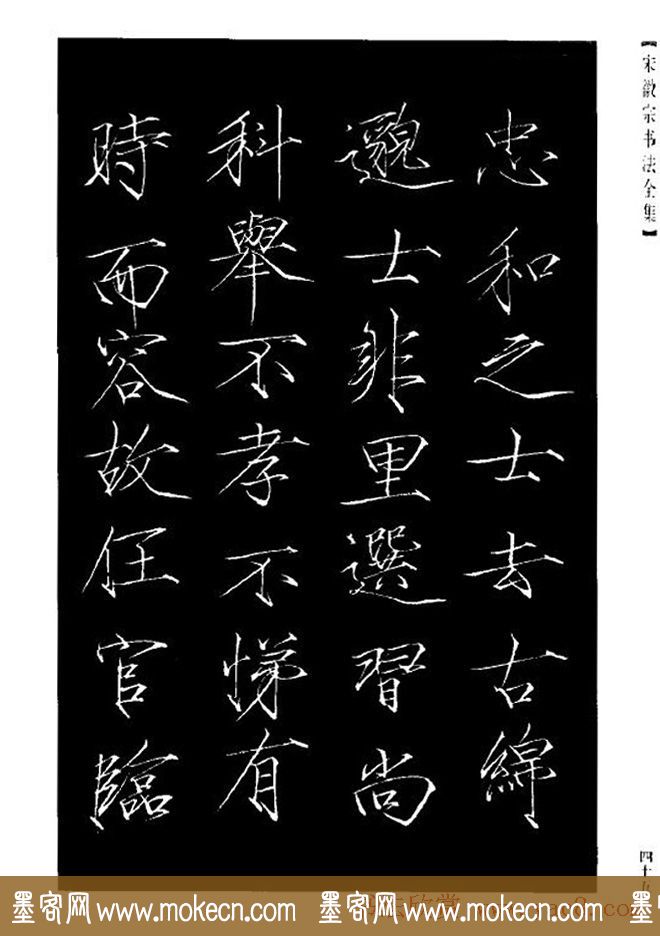 【宋徽宗书法全集】
忠和之士去古綿
邈士非里選習尚
科舉不孝不悌有
時而容故任官臨
四十
墨客网 www.mokecn.com 墨客网 www.mokecn.com